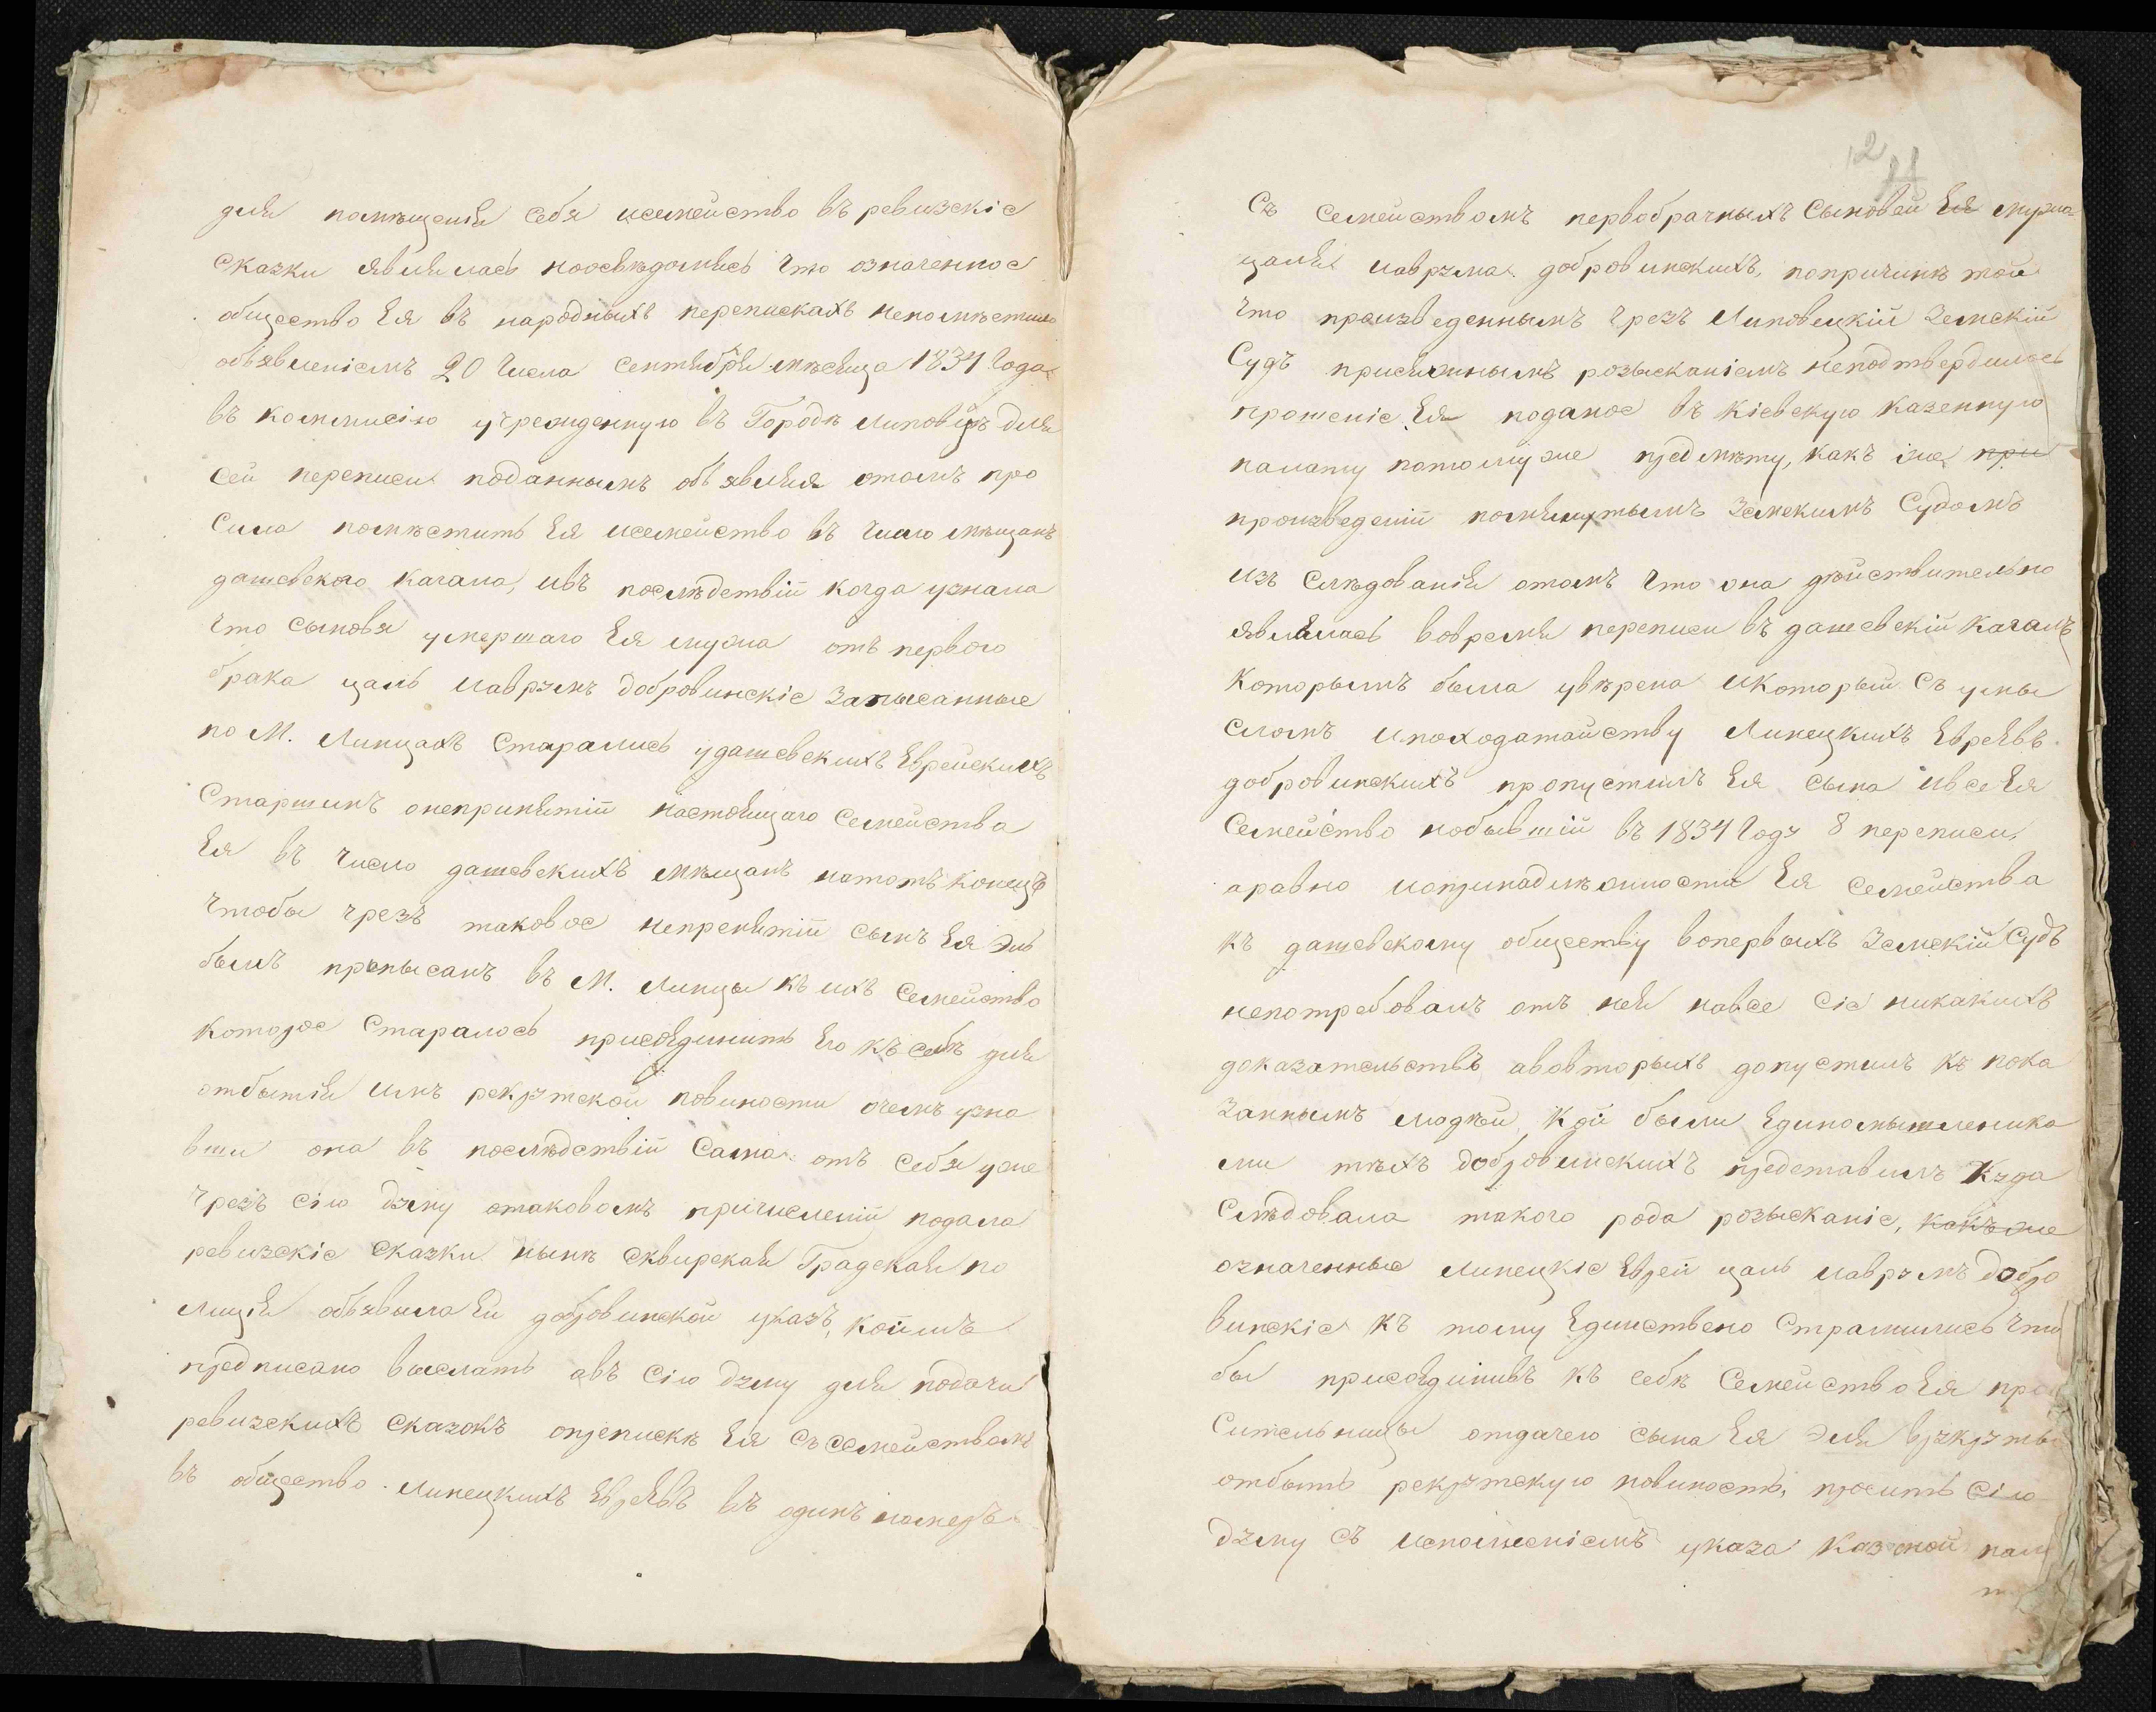 для помѣщенія себя исемейство въ ревизскіе
сказки явлилась ноосвѣдомись что означенное
общество Ея въ народныхъ перепискахъ непомѣстило
объявленіемъ 20 Числа Сентября мѣсяца 1834 Года
въ коммисію учрежденную въ Городѣ Липовцѣ для
сей переписи поданнымъ объявляя отомъ про
сила помѣстить Ея исемейство въ Число мѣщанъ
дашевского Кагала, ивъ послѣдствій когда узнала
Что сыновя умершаго Ея мужа отъ первого
брака цаль Маврумъ добровинскіе Запысанные
по М. Липцахъ Старались удашевскихъ Еврейскихъ
Старшинъ онепринятій настоящаго Семейства
Ея въ число дашевскихъ мѣщанъ натотъ конецъ
Чтобы чрезъ таковое непренятій сынъ Ея Эль
былъ препысанъ въ М. Липцы къ ихъ Семейство
которое Старалось присоядинить Его къ себѣ для
отбытія имъ рекрутской повиности очемъ узна
вши она въ послѣдствій сама отъ себя уже
чрезъ сію думу отаковомъ причисленій подала
ревизскіе сказки нынѣ Сквирская Градская по
лиція объявыла Ей добровинской указъ, коимъ
предписано выслать авъ сію думу для подачи
ревизскихъ сказокъ опрепискѣ Ея съсемействомъ
въ общество Липецкихъ Евреявъ въ одинъ номеръ
12
Съ семействомъ первобрачныхъ Сыновей Ея мужа
цаля Маврума добровинскихъ, попричинѣ той
что произведеннымъ чрезъ Липовецкій Земскій
Судъ присяжнымъ розысканіемъ неподтвердилось
прошеніе Ея поданое въ Кіевскую Казенную
палату потомуже предмѣту, какъ же при
произведеній помянутымъ Земскимъ Судомъ
изъ слѣдованія отомъ что она дѣйствительно
являлась вовремя переписи въ дашевскій Кагалъ
Которымъ была увѣрена икоторый съ умы
сломъ ипоходатайству Липецкихъ Евреявъ
добровинскихъ пропустилъ Ея сына ивсе Ея
Семейство небывшій въ 1834 Году 8 переписи,
аравно ипринадлѣжности Ея семейства
къ дашевскому обществу вопервыхъ Земскій Судъ
непотребовалъ отъ нея навсе сіе никакихъ
доказательствъ авовторыхъ допустилъ къ пока
заннымъ людѣй, Кой были Единомышленика
ми тѣхъ добровинскихъ представилъ Куда
Слѣдовала такого рода розысканіе, какъ же
означенные Липецкіе Еврей цаль Маврумъ добро
винскіе къ тому Единствено Страмились что
бы присоядинивъ къ себѣ Семейство Ея про
сительницы отдачею сына Ея Эля врукрутъ
отбыть рекрутскую повиность, просить сію
думу съ исполненіемъ указа Казеной пала